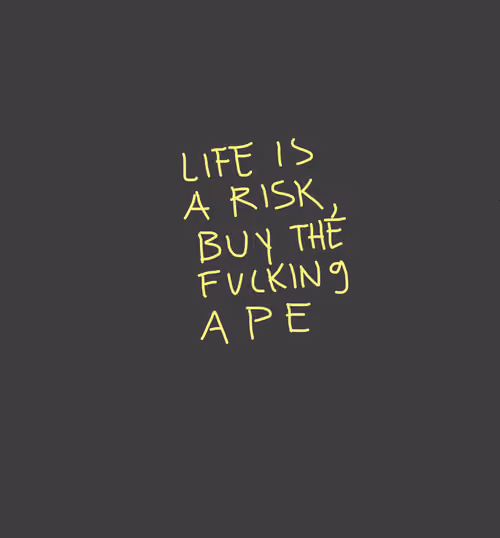 LIFE IS
A RISK,
BUY THE
FUCKING
APE